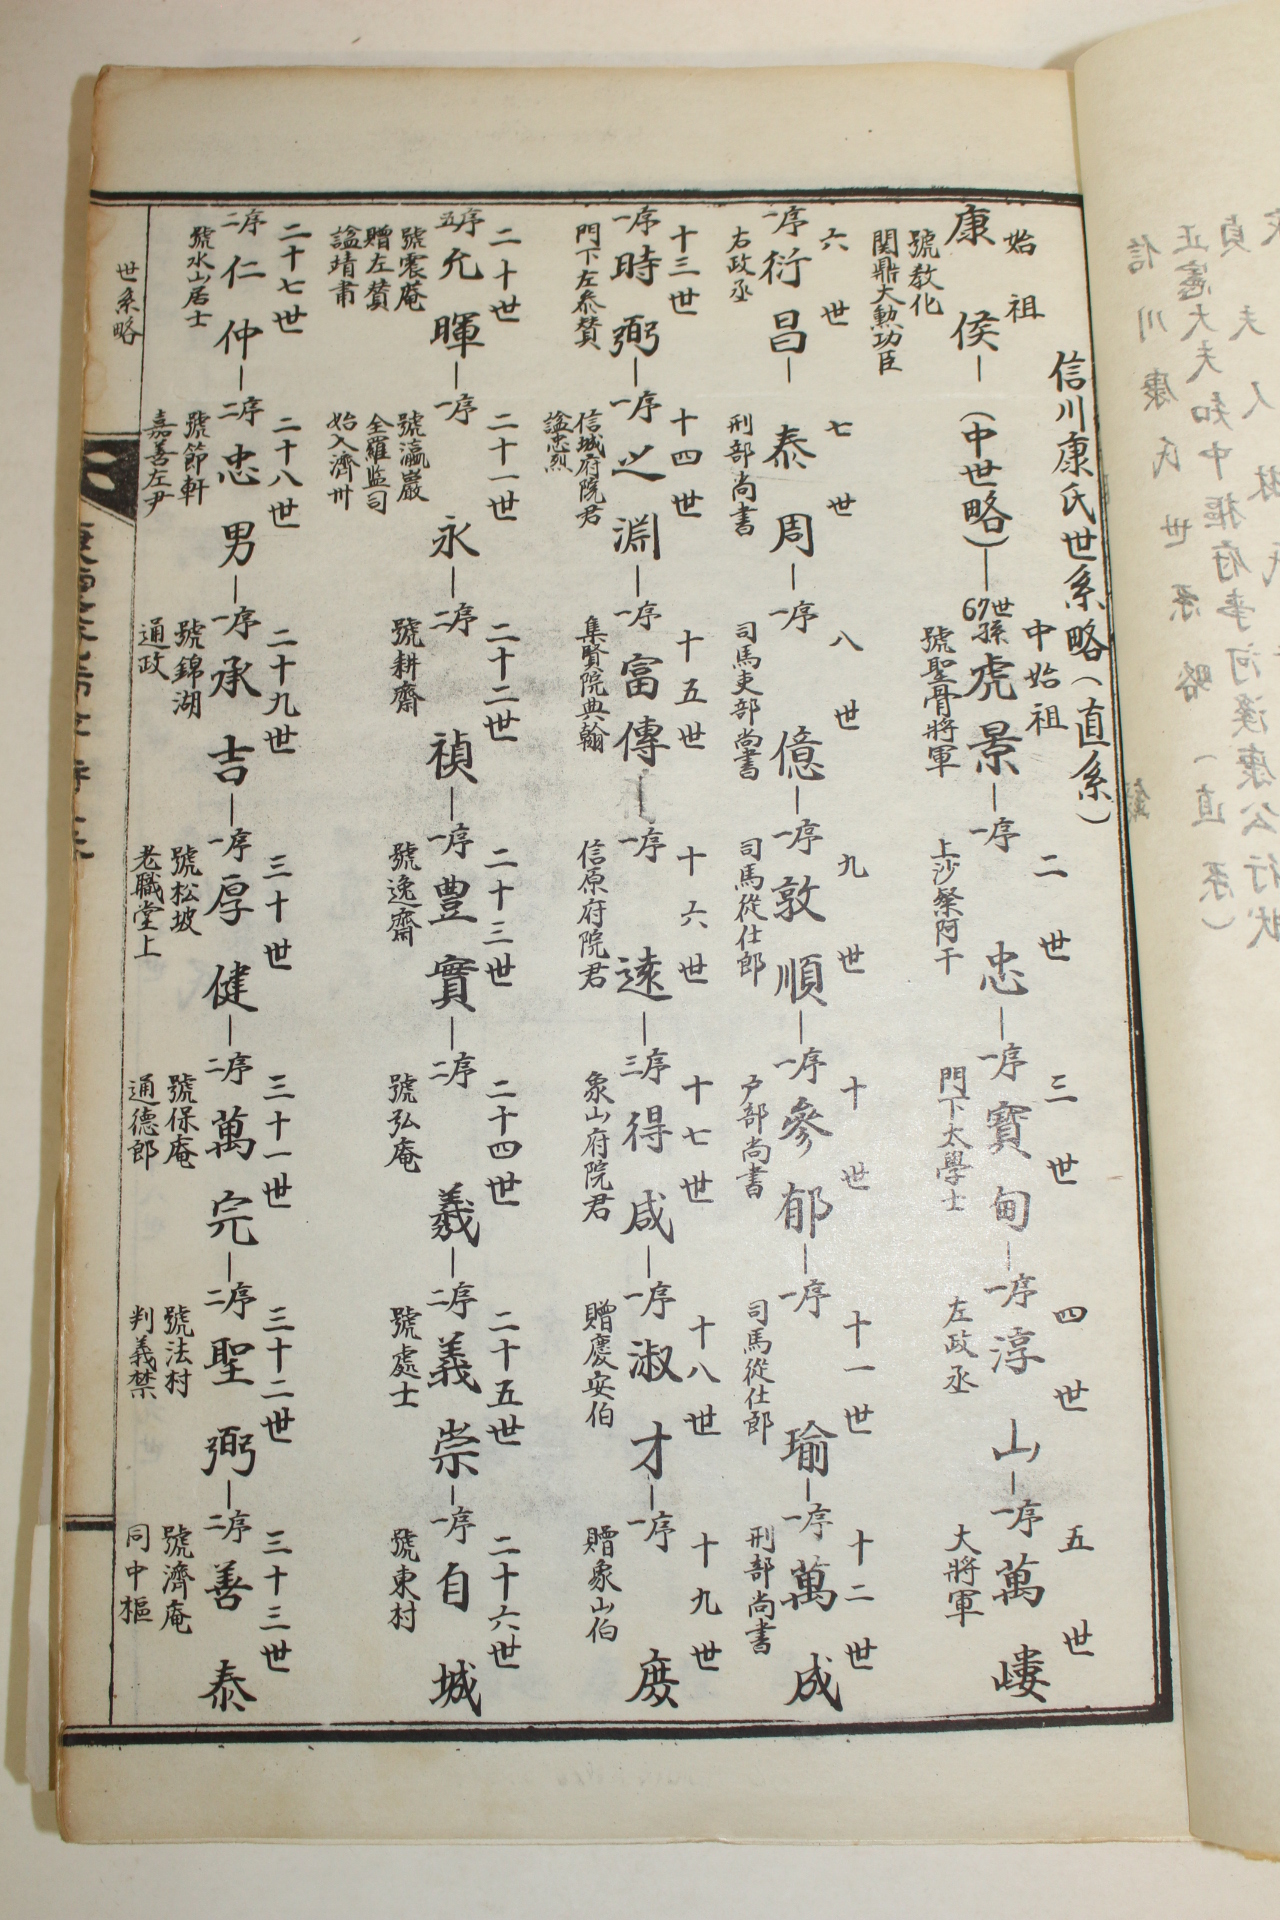 信川康氏世系略(直系)
始祖
康侯
號教化
開鼎大勲功臣
(中世略)
67世孫
中始祖
虎景
號聖骨將軍
二世
一序
忠
上沙粲阿干
三世
一序
寶甸
門下太學士
四世
一序
淳山
左政丞
五世
一序
萬嶁
大將軍
六世
一序
衍昌
右政丞
七世
泰周
刑部尚書
八世
一序
億
司馬吏部尚書
九世
一序
敦順
司馬從仕郎
十世
一序
參郁
戶部尚書
十一世
一序
瑜
司馬從仕郎
十二世
一序
萬成
刑部尚書
十三世
一序
時弼
門下左叅賛
十四世
一序
之淵
信城府院君
諡忠烈
十五世
一序
富傳
集賢院典翰
十六世
一序
遠
信原府院君
十七世
三序
得咸
象山府院君
十八世
一序
淑才
贈慶安伯
十九世
一序
庹
贈象山伯
二十世
五序
允暉
號震菴
贈左賛
諡靖肅
二十一世
一序
永
號瀛巖
全羅监司
始入濟州
二十二世
二序
禎
號耕齋
二十三世
一序
豊實
號逸齋
二十四世
二序
義
號弘庵
二十五世
二序
義崇
號處士
二十六世
一序
自城
號東村
二十七世
二序
仁仲
號水山居士
二十八世
二序
忠男
號節軒
嘉善左尹
二十九世
一序
承吉
號錦湖
通政
三十世
一序
厚健
號松坡
老職堂上
三十一世
二序
萬完
號保庵
通德郎
三十二世
二序
聖弼
號法村
判義禁
三十三世
二序
善泰
號濟庵
同中樞
世系略